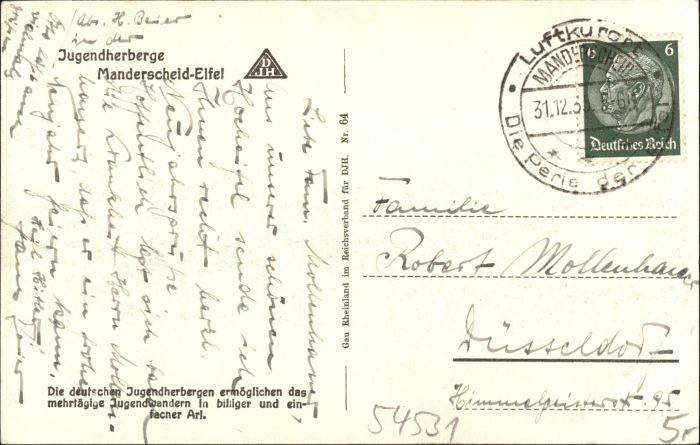 Abs. H. Beier
in der
Jugendherberge
Manderscheid-Eifel
DJH
Liebe Fam. Mollenhauer,
Aus unserer schönen
Hocheifel sende ich
Ihnen recht herzl.
Neujahrsgrüße
Hoffentlich hat sich
die Krankheit Herrn Mollen-
hauers
daß er ein frohes
Neujahr feiern kann.
Heil Hitler
Hans Beier
Die deutschen Jugendherbergen ermöglichen das
mehrtägige Jugendwandern in billiger und ein-
facher Art.
Gau Rheinland im Reichsverband für DJH. Nr. 64
Luftkurort
MANDERSCHEID
31.12.3
Die Perle der
6
6
Deutsches Reich
Familie
Robert Mollenhauer
Düsseldorf
Himmelgeisterstr. 95
54531
5,-